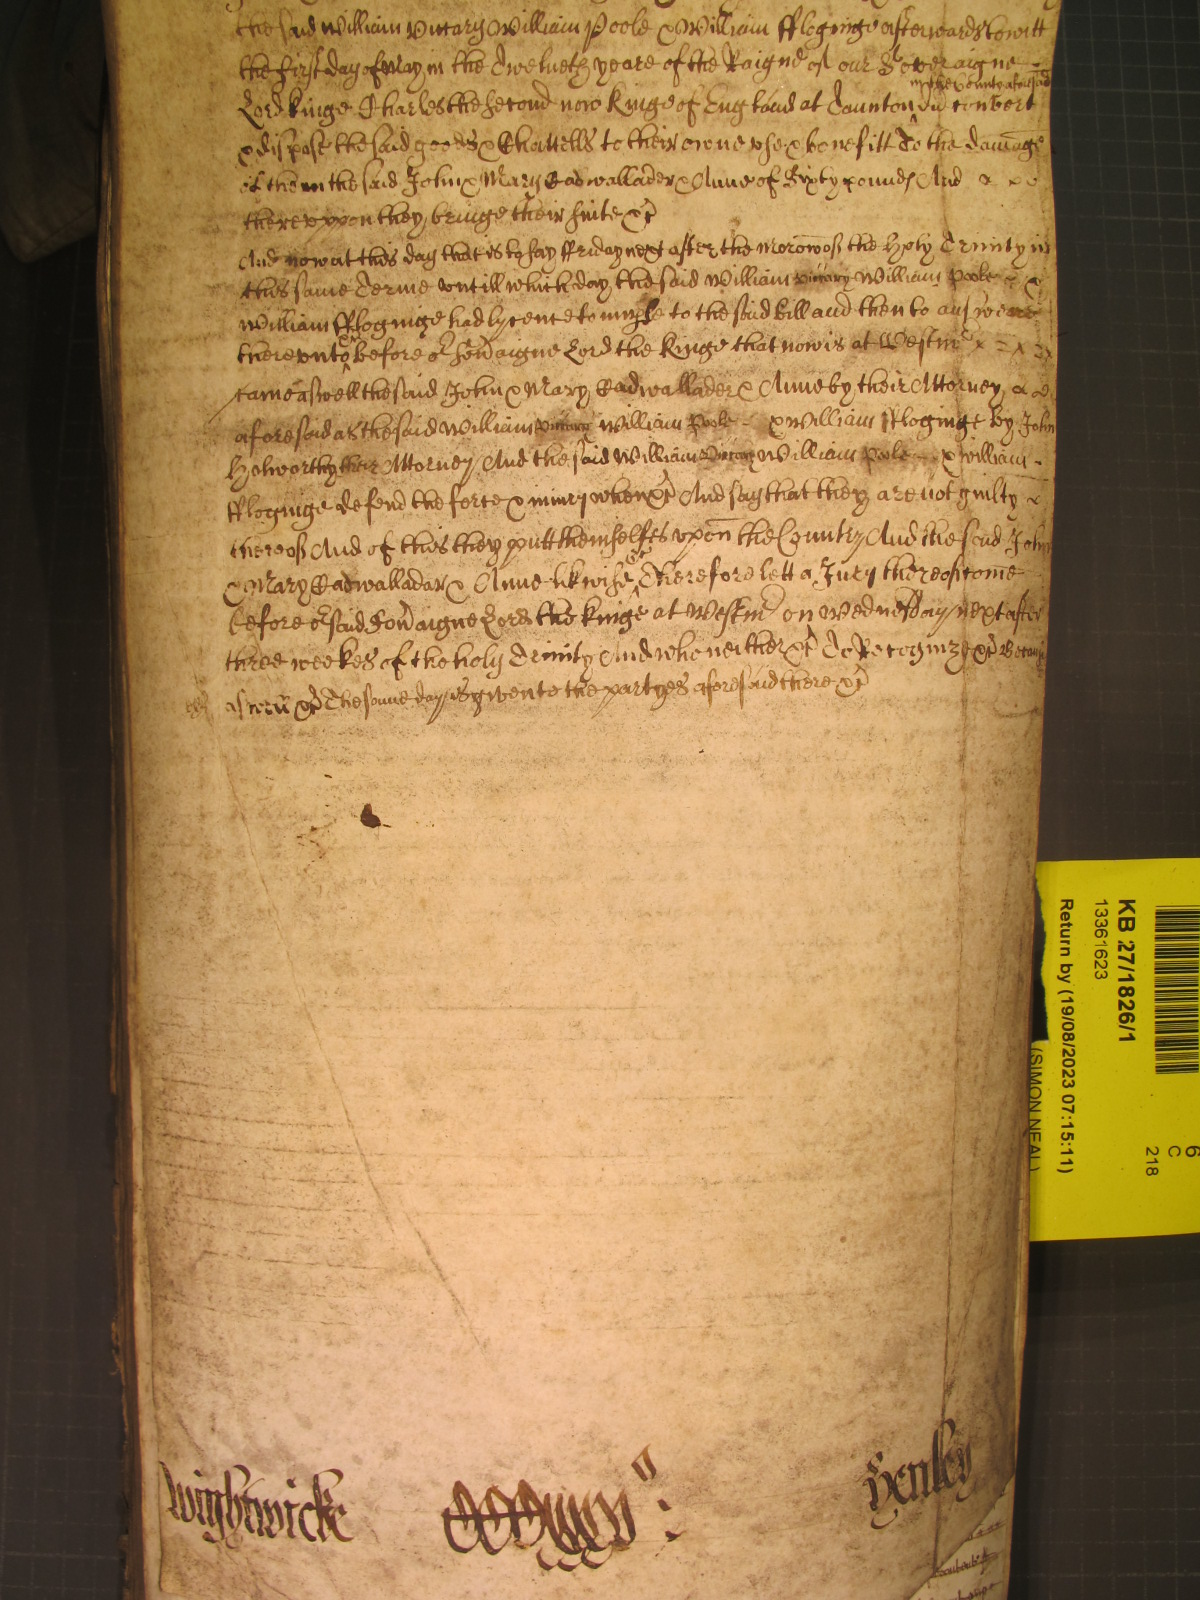 the said William Vicary William Poole & William ffloginge afterwards to witt
the first day of May in the Twelueth yeare of the Raigne of our Soveraigne
in the County aforesaid
Lord Kinge Charles the second now Kinge of England at Taunton did convert
& dispose the said goods & Chattells to their owne vse & benefitt To the damage
of them the said John & Mary Cadwallader & Anne of Sixty pounds And
therevppon they bringe their suite &c
And now at this day that is to say ffriday next after the Morow of the Holy Trinity in
this same Terme vntill which day the said William Vicary William Poole &
William ffloginge had lycence to imparle to the said Bill and then to answeare
therevnto &c before or Soveraigne Lord the Kinge that now is at Westmr
came aswell the said John & Mary Cadwallader & Anne by their Attorney
aforesaid as the said William Vicary William Poole & William ffloginge by John
Holworthy their Attorney And the said William Vicary William Poole & William
ffloginge defend the force & iniury when &c And say that they are not guilty
thereof And of this they putt themselfes vpon the Country And the said John
& Mary Cadwallader & Anne likwise &c Therefore lett a Jury thereof come
before or said Soveraigne Lord the Kinge at Westmr on Wednesday next after
three weekes of the holy Trinity And who neither &c To Recognize &c Because
aswell &c The same day is given to the partyes aforesaid there &c
Wightwicke
Henley
KB 27/1826/1
13361623
Return by (19/08/2023 07:15:11)
(SIMON NEAL)
6
C
218